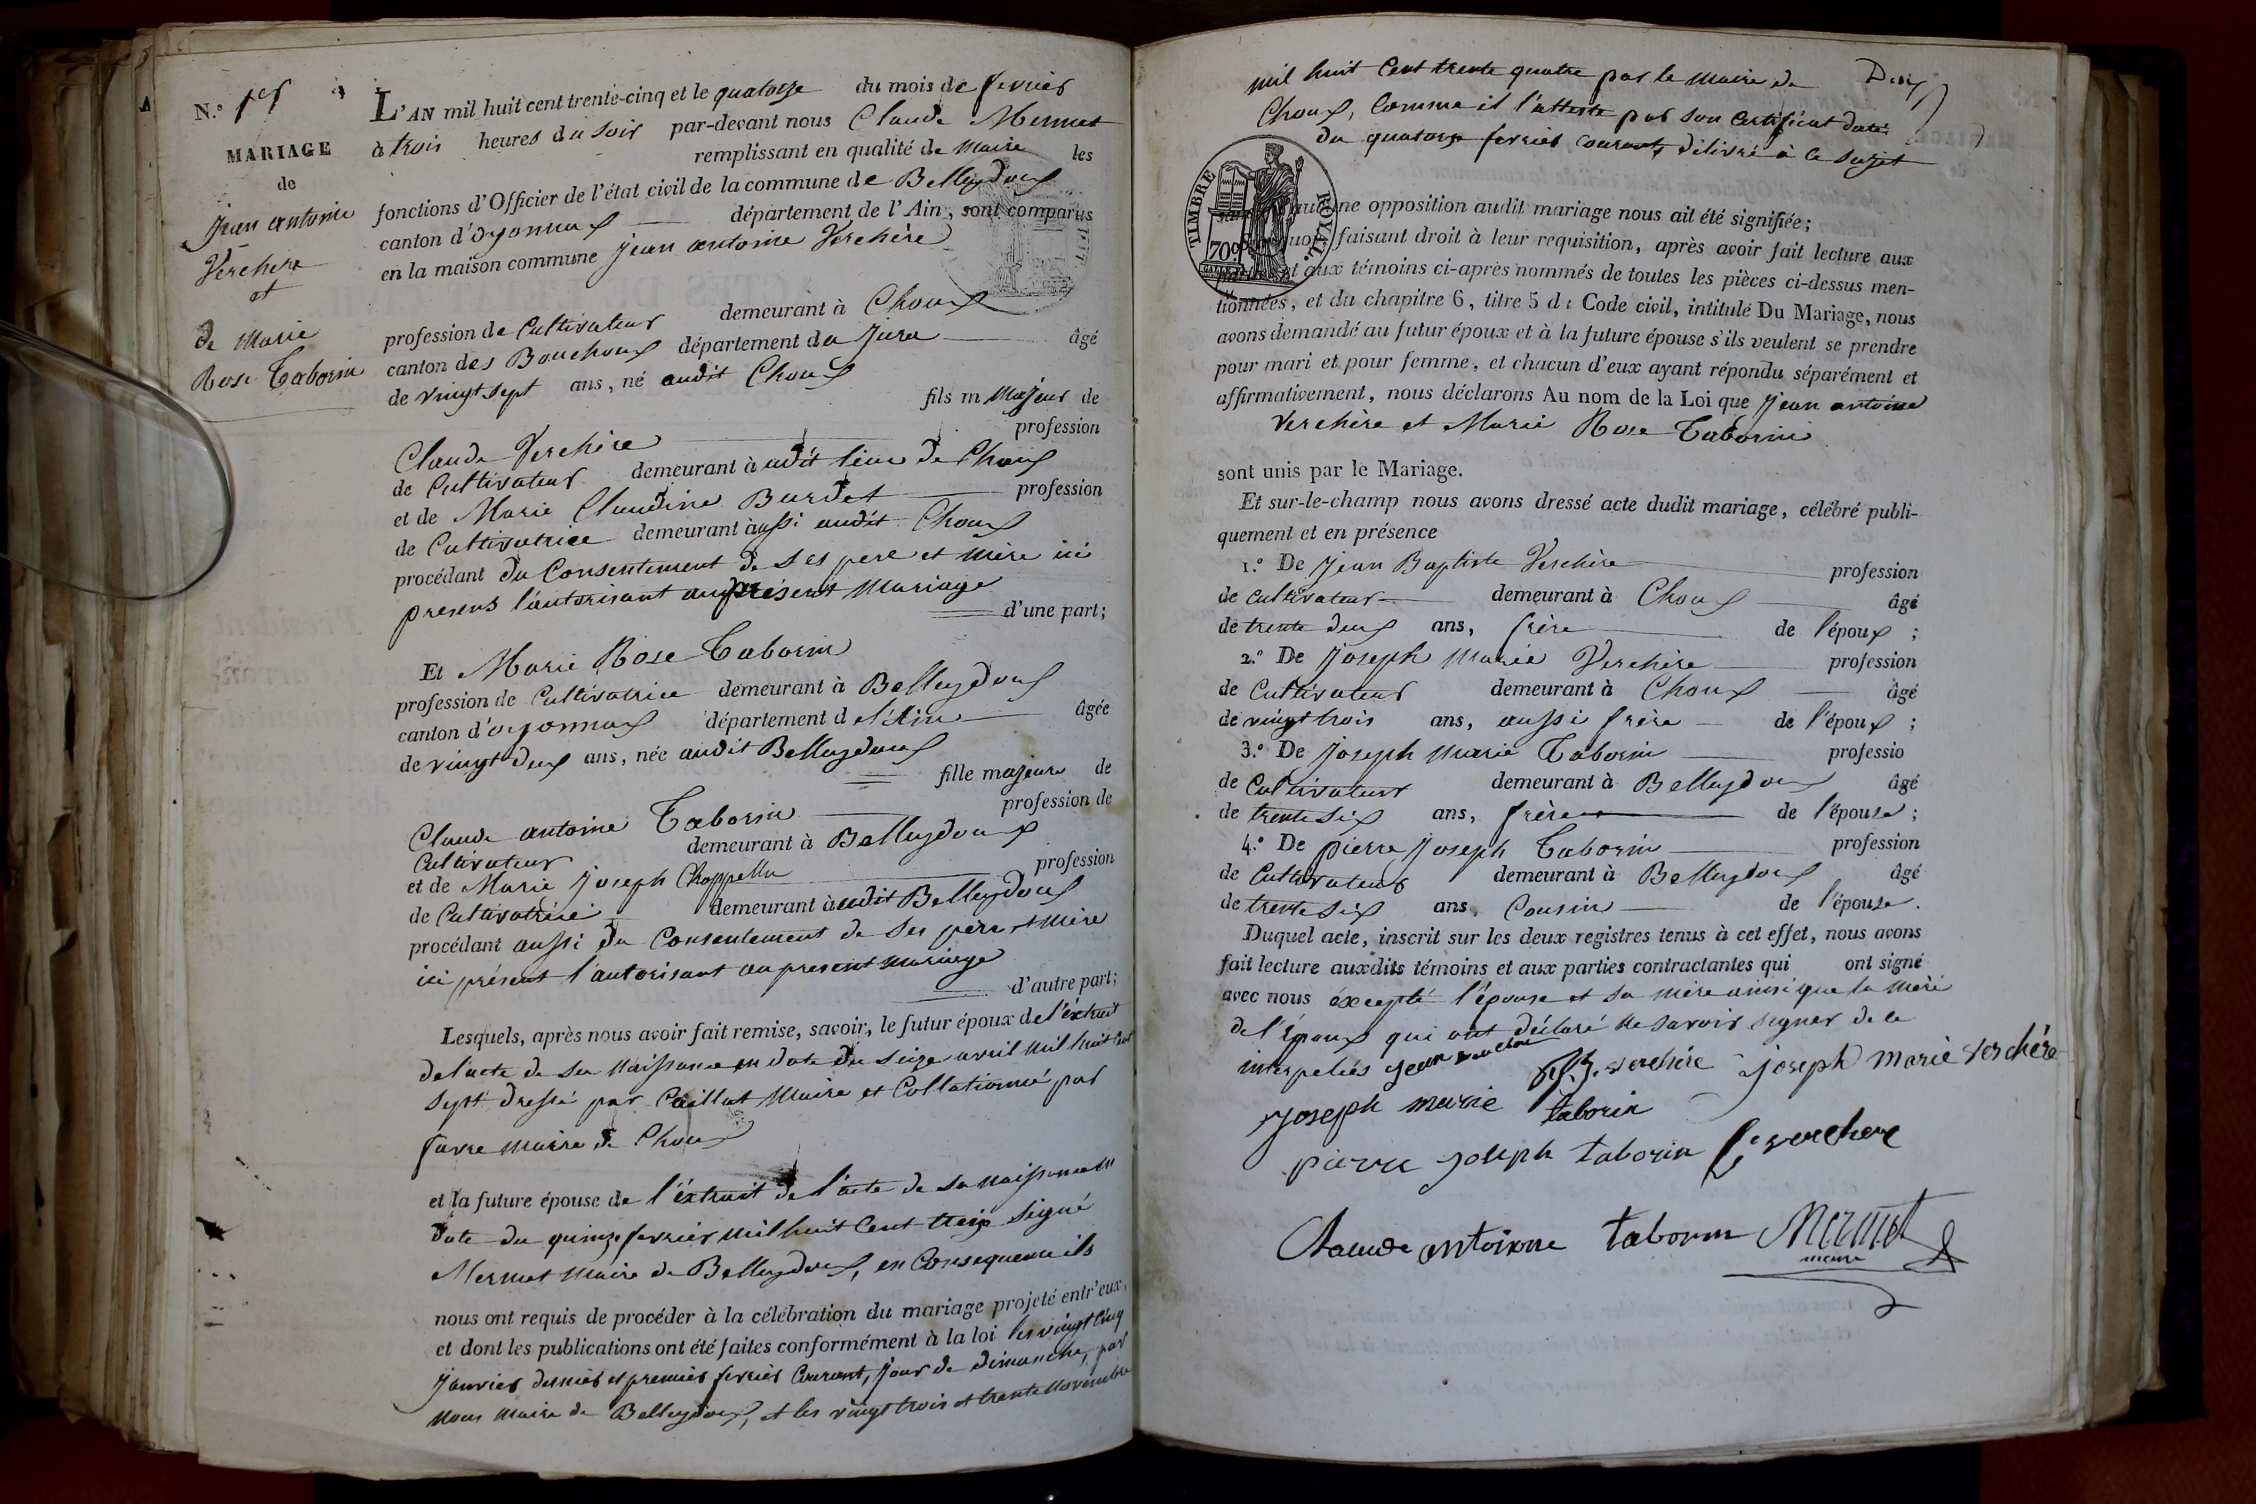 N.o 1er
MARIAGE
de
Jean antoine
Verchere
et
de Marie
Rose Taborin
L'AN mil huit cent trente-cinq et le quatorze du mois de fevrier
à trois heures du soir par-devant nous Claude Mermet
remplissant en qualité de maire les
fonctions d'Officier de l'état civil de la commune de Belleydoux
canton d'oyonnax département de l'Ain, sont comparus
en la maison commune Jean antoine Verchère
profession de Cultivateur demeurant à Choux
canton des Bouchoux département du Jura âgé
de vingt sept ans, né audit Choux
fils m Majeur de
Claude Verchère profession
de Cultivateur demeurant à udit lieu de Choux
et de Marie Claudine Burdet profession
de Cultivatrice demeurant à ussi audit Choux
procédant du Consentement de ses pere et mère ici
presens l'autorisant au présent Mariage
d'une part;
Et Marie Rose Taborin
profession de Cultivatrice demeurant à Belleydoux
canton d'oyonnax département d el'Ain âgée
de vingt deux ans, née audit Belleydoux
fille majeure de
Claude antoine Taborin profession de
Cultivateur demeurant à Belleydoux
et de Marie Joseph Chappellu profession
de Cultivatrice demeurant à udit Belleydoux
procédant aussi du Consentement de ses père et mère
ici présent l'autorisant au present mariage
d'autre part;
Lesquels, après nous avoir fait remise, savoir, le futur époux de l'éxtrait
de l'acte de sa Naissance en date du seize avril mil huit cent
sept dressé par Caillat Maire et Collationné par
favre maire de Choux
et la future épouse de l'éxtrait de l'acte de sa naissance en
date du quinze fevrier mil huit Cent treize signé
Mermet Maire de Belleydoux, en Consequence ils
nous ont requis de procéder à la célébration du mariage projeté entr'eux,
et dont les publications ont été faites conformément à la loi les vingt cinq
Janvier dernier et premier fevrier Courant, Jour de dimanche, par
nous maire de Belleydoux, et les vingt trois et trente Novembre
mil huit Cent trente quatre par le Maire de
Choux, Comme il l'atteste par son Certificat daté
du quatorze fevrier courant, délivré à ce sujet
TIMBRE ROYAL
70c
aucune opposition audit mariage nous ait été signifiée;
quoi, faisant droit à leur requisition, après avoir fait lecture aux
parties et aux témoins ci-après nommés de toutes les pièces ci-dessus men-
tionnées, et du chapitre 6, titre 5 du Code civil, intitulé Du Mariage, nous
avons demandé au futur époux et à la future épouse s'ils veulent se prendre
pour mari et pour femme, et chacun d'eux ayant répondu séparément et
affirmativement, nous déclarons Au nom de la Loi que Jean antoine
Verchère et Marie Rose Taborin
sont unis par le Mariage.
Et sur-le-champ nous avons dressé acte dudit mariage, célébré publi-
quement et en présence
1.o De Jean Baptiste Verchère profession
de cultivateur demeurant à Choux âgé
de trente deux ans, frère de l'époux ;
2.o De Joseph Marie Verchère profession
de Cultivateur demeurant à Choux âgé
de vingt trois ans, aussi frère de l'époux ;
3.o De Joseph Marie Taborin professio
de Cultivateur demeurant à Belleydoux âgé
de trente six ans, frère de l'épouse ;
4.o De pierre Joseph Taborin profession
de Cultivateur demeurant à Belleydoux âgé
de trente six ans, Cousin de l'épouse.
Duquel acte, inscrit sur les deux registres tenus à cet effet, nous avons
fait lecture auxdits témoins et aux parties contractantes qui ont signé
avec nous éxcepté l'épouse et sa mère ainsi que la mère
de l'époux qui ont déclaré ne savoir signer de ce
interpelés Jean J. B. verchére Joseph marie verchére
Joseph marie taborin
pierre joseph taborin Cl verchere
Claude antoinne taborin Mermet
maire